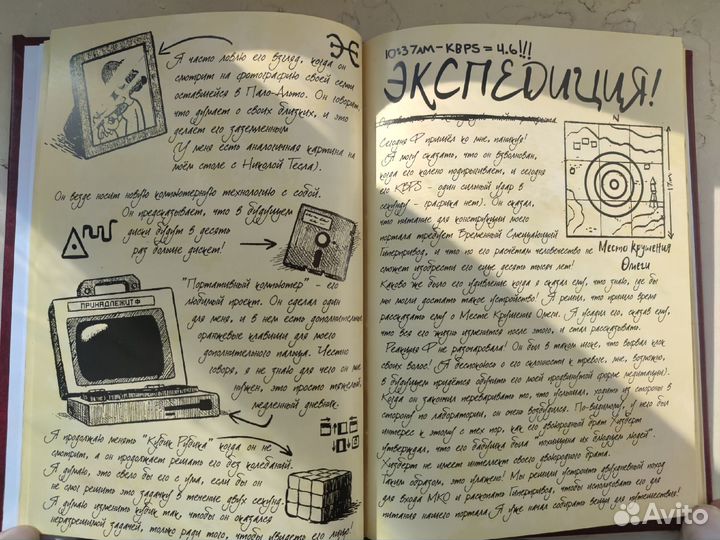 Я часто ловлю его взгляд, когда он
смотрит на фотографию своей семьи
оставшейся в Пало-Альто. Он говорит,
что думает о своих близких, и это
делает его заземленным
(У меня есть аналогичная картина на
моём столе с Николой Тесла).
Он везде носит новую компьютерную технологию с собой.
Он предсказывает, что в будущем
диски будут в десять
раз больше дискет!
ПРИНАДЛЕЖИТ Ф
"Портативный компьютер" - его
любимый проект. Он сделал один
для меня, и в нем есть дополнительные
оранжевые клавиши для моего
дополнительного пальца. Честно
говоря, я не знаю для чего он мне
нужен, это просто тяжелый,
медленный дневник.
Я продолжаю менять "Кубик Рубика" когда он не
смотрит, а он продолжает решать его без колебаний.
Я думаю, это свело бы его с ума, если бы он
не смог решить эту задачку в течение двух секунд.
Я думаю изменить кубик так, чтобы он оказался
неразрешимой задачей, только ради того, чтобы увидеть его лицо!
10:37AM - KBPS = 4.6!!!
ЭКСПЕДИЦИЯ!
Сегодня Ф пришёл ко мне, паникуя!
(Я могу сказать, что он взволнован,
когда его колено подпрыгивает, и сегодня
его KBPS - один сильный удар в
секунду - (графика нет). Он сказал,
что питание для конструкции моего
портала требует Временный Смещающий
Гипердривод, и что по его расчётам человечество не
сможет изобрести его еще десять тысяч лет!
N
Место Крушения
Омеги
Каково же было его удивление когда я сказал ему, что знаю, где бы
мы могли достать такое устройство! Я решил, что пришло время
рассказать ему о Месте Крушения Омеги. Я усадил его, сказав ему,
что вся его жизнь изменится после этого, и стал рассказывать.
Реакция Ф не разочаровала! Он был в таком шоке, что вырвал клок
своих волос! (Я беспокоюсь о его склонности к тревоге, мне, возможно,
в будущем придётся обучить его моей продвинутой форме медитации).
Когда он закончил переваривать то, что услышал, ходить из стороны в
сторону по лаборатории, он очень возбудился. По-видимому, у него был
интерес к этому с тех пор, как его двоюродный брат Хизберт
утверждал, что его бабушка была "похищена их блюдцем людей".
Хизберт не имеет интеллект своего двоюродного брата.
Таким образом, это улажено! Мы решили устроить двухдневный поход
для входа МКО и раскопать Гипердривод, чтобы использовать его для
питания нашего портала. Я уже начал собирать вещи для путешествия!
Avito